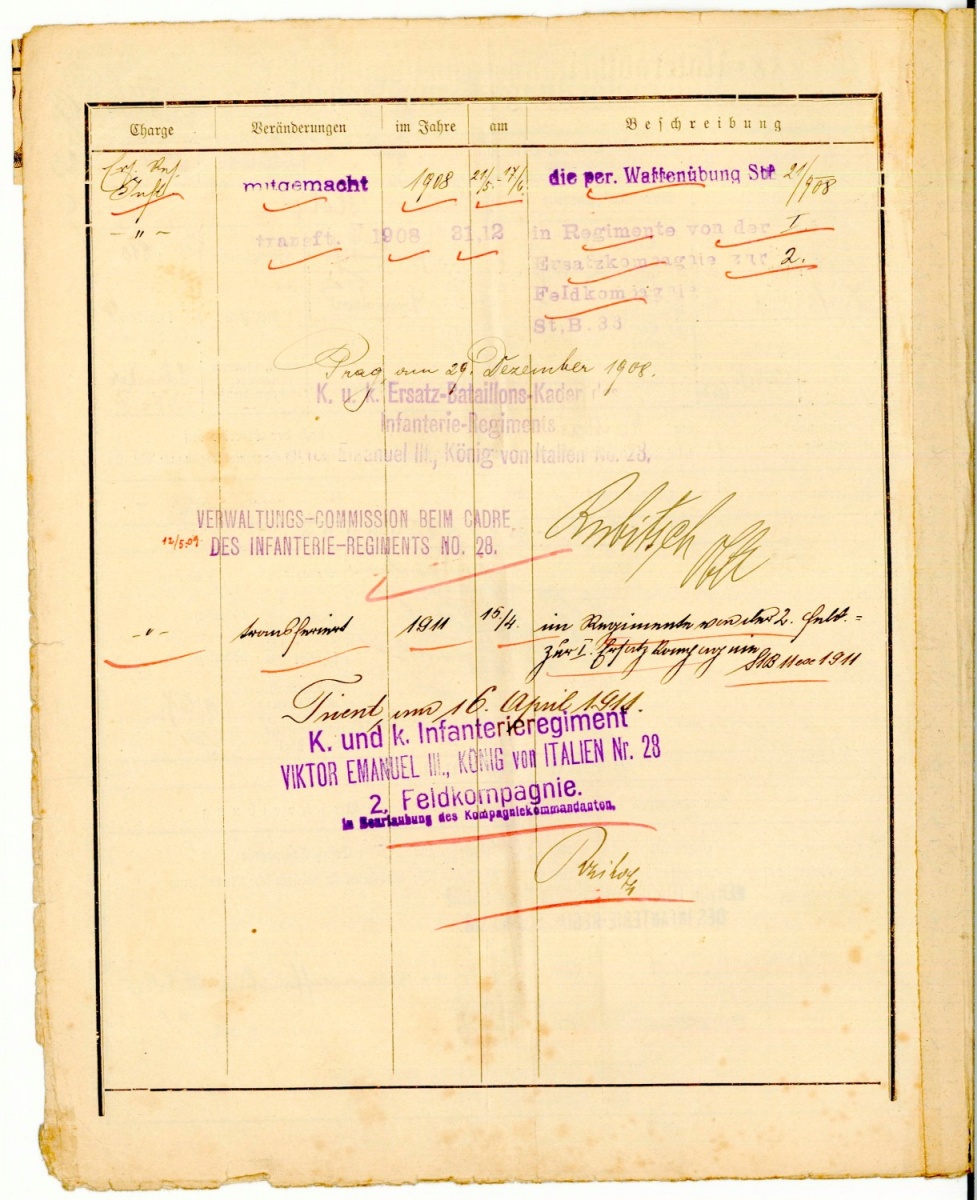 Charge Veränderungen im Jahre am Beschreibung
Ers. Res.
Inft mitgemacht 1908 21/5.-17/6. die per. Waffenübung StB 21/9 08
" transft. 1908 31,12 in Regimente von der I.
Ersatzkompagnie zur 2.
Feldkompagnie
St,B. 33
Prag, am 29. Dezember 1908.
K. u. k. Ersatz-Bataillons-Kader des
Infanterie-Regiments
Emanuel III., König von Italien No. 28.
VERWALTUNGS-COMMISSION BEIM CADRE
12/5.09 DES INFANTERIE-REGIMENTS NO. 28.
Rubitsch Oblt
" transferiert 1911 15./4. im Regimente von der 2. Feld.=
zur I. Ersatzkompagnie
StB 11 ex 1911
Trient, am 16. April 1911.
K. und k. Infanterieregiment
VIKTOR EMANUEL III., KÖNIG von ITALIEN Nr. 28
2. Feldkompagnie.
In Beurlaubung des Kompagniekommandanten.